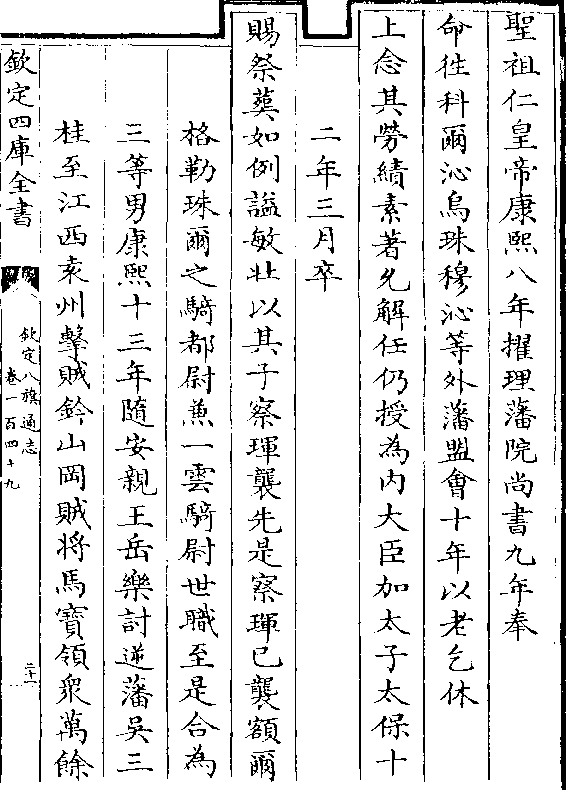 聖祖仁皇帝康熙八年擢理藩院尚書九年奉
命徃科爾沁烏珠穆沁等外藩盟會十年以老乞休
上念其勞績素著允解任仍授為内大臣加太子太保十
二年三月卒
賜祭葬如例諡敏壯以其子察琿襲先是察琿已襲額爾
格勒珠爾之騎都尉兼一雲騎尉世職至是合為
三等男康熙十三年隨安親王岳樂討逆藩吳三
桂至江西袁州擊賊鈐山岡賊將馬寶領衆萬餘
欽定四庫全書
欽定八旗通志
卷一百四十九
二十一